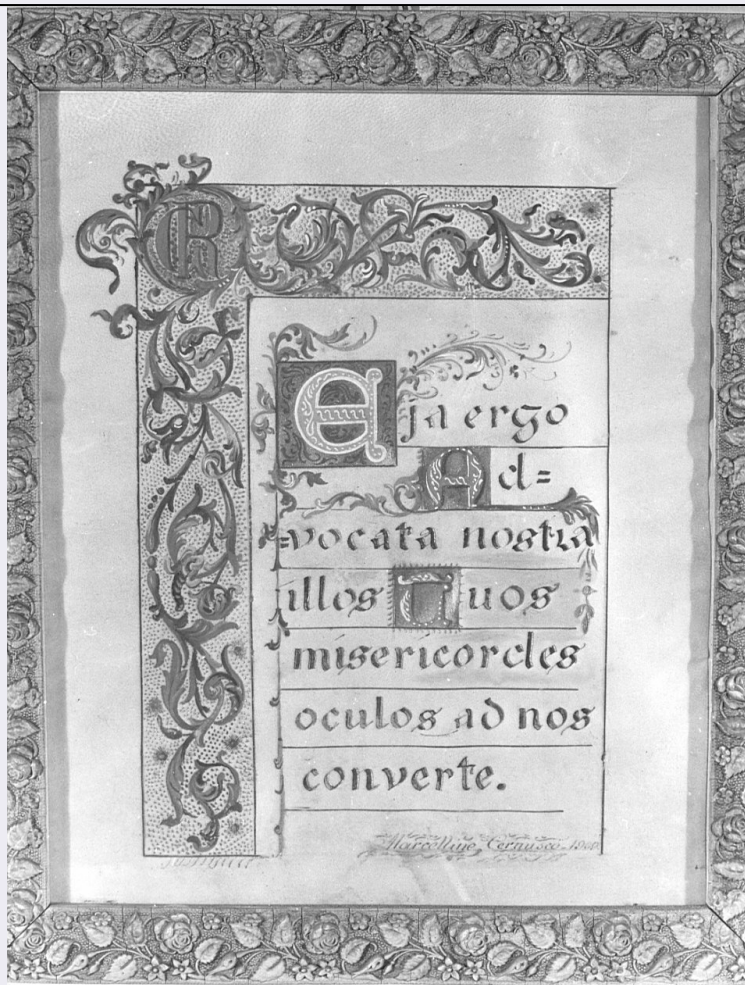 R
Eja ergo
Ad=
=vocata nostra
illos Tuos
misericordes
oculos ad nos
converte.
Marcelline, Cernusco